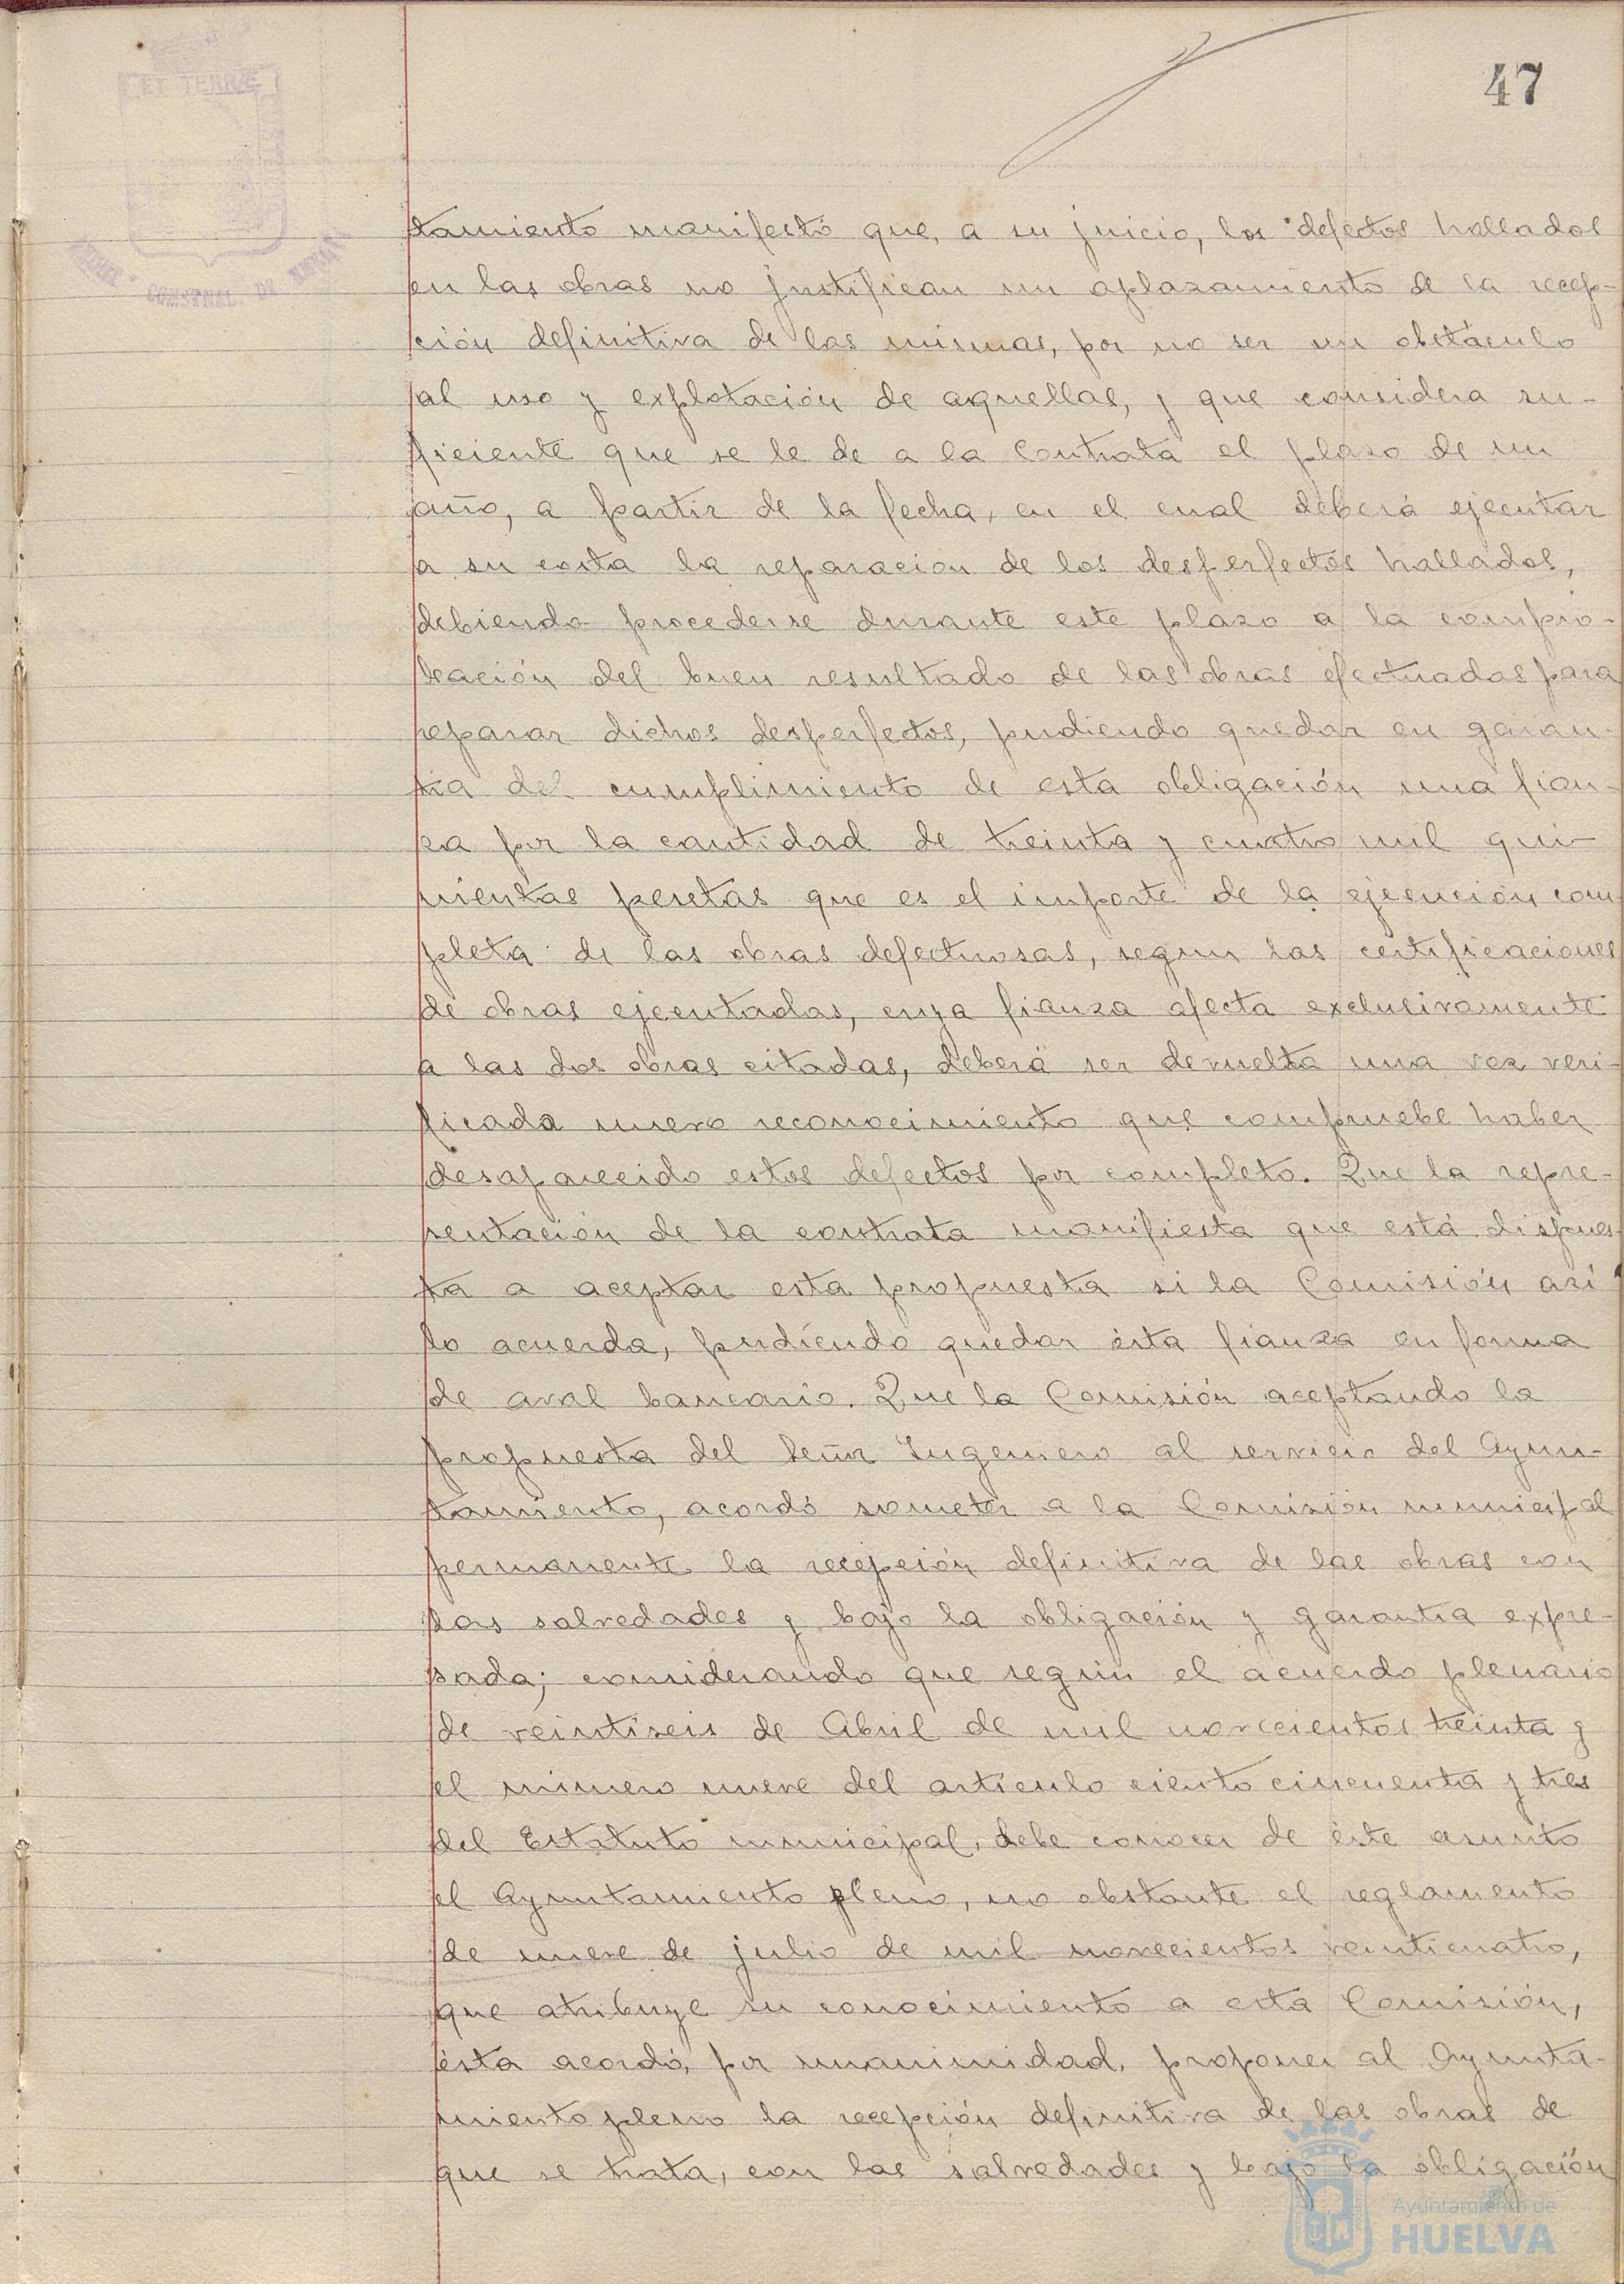 47
ET TERRÆ
CONSTNAL. DE
tamiento manifestó que, a su juicio, los defectos hallados
en las obras no justifican un aplazamiento de la recep-
ción definitiva de las mismas, por no ser un obstáculo
al uso y explotación de aquellas, y que considera su-
ficiente que se le de a la Contrata el plazo de un
año, a partir de la fecha, en el cual deberá ejecutar
a su costa la reparación de los desperfectos hallados,
debiendo procederse durante este plazo a la compro-
bación del buen resultado de las obras efectuadas para
reparar dichos desperfectos, pudiendo quedar en garan-
tía del cumplimiento de esta obligación una fian-
za por la cantidad de treinta y cuatro mil qui-
nientas pesetas que es el importe de la ejecución com-
pleta de las obras defectuosas, segun las certificaciones
de obras ejecutadas, cuya fianza afecta exclusivamente
a las dos obras citadas, deberá ser devuelta una vez veri-
ficada nuevo reconocimiento que compruebe haber
desaparecido estos defectos por completo. Que la repre-
sentación de la contrata manifiesta que está dispues-
ta a aceptar esta propuesta si la Comisión así
lo acuerda, pudiendo quedar ésta fianza en forma
de aval bancario. Que la Comisión aceptando la
propuesta del Señor Ingeniero al servicio del Ayun-
tamiento, acordó someter a la Comisión municipal
permanente la recepción definitiva de las obras con
las salvedades y bajo la obligación y garantía expre-
sada; considerando que según el acuerdo plenario
de veintiseis de Abril de mil novecientos treinta y
el número nueve del artículo ciento cincuenta y tres
del Estatuto municipal, debe conocer de éste asunto
el Ayuntamiento pleno, no obstante el reglamento
de nueve de julio de mil novecientos veinticuatro,
que atribuye su conocimiento a esta Comisión,
ésta acordó, por unanimidad, proponer al Ayunta-
miento pleno la recepción definitiva de las obras de
que se trata, con las salvedades y bajo la obligación
Ayuntamiento de
HUELVA